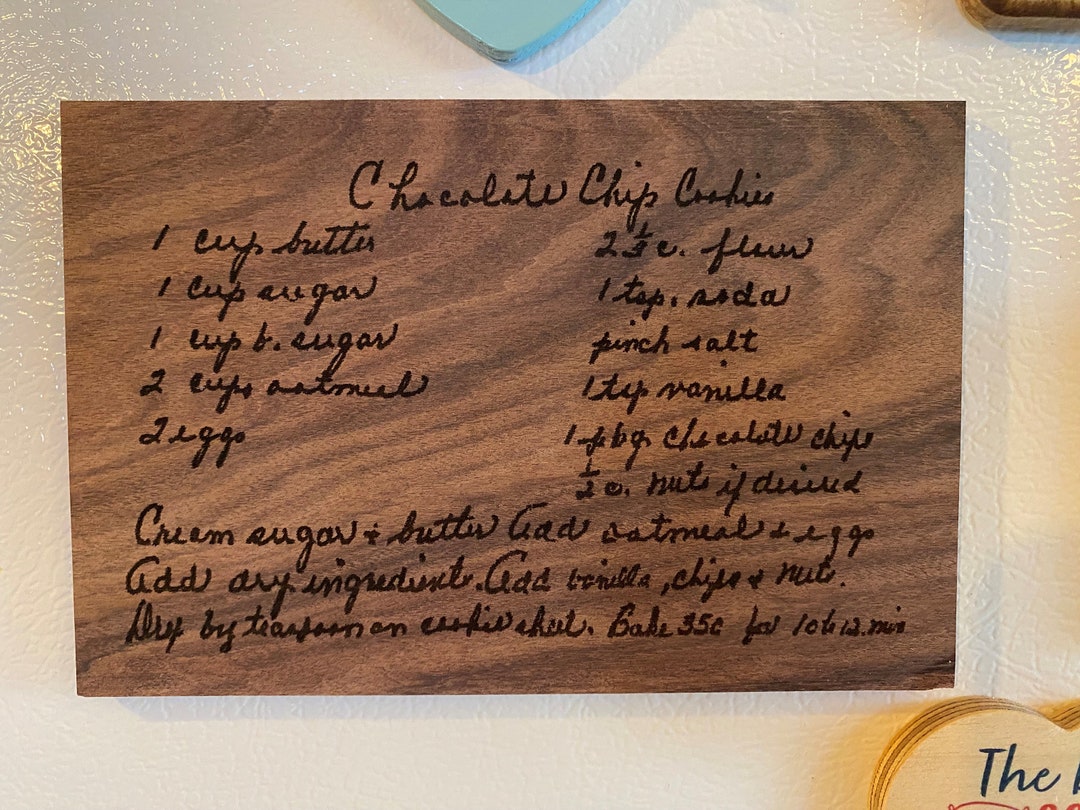 Chocolate Chip Cookies
1 cup butter
1 cup sugar
1 cup b. sugar
2 cups oatmeal
2 eggs
2 ½ c. flour
1 tsp. soda
pinch salt
1 tsp vanilla
1 pkg. chocolate chips
½ c. nuts if desired
Cream sugar & butter Add oatmeal & eggs
Add dry ingredients. Add vanilla, chips & nuts.
Drop by teaspoon on cookie sheet. Bake 350 for 10 to 12 min
The